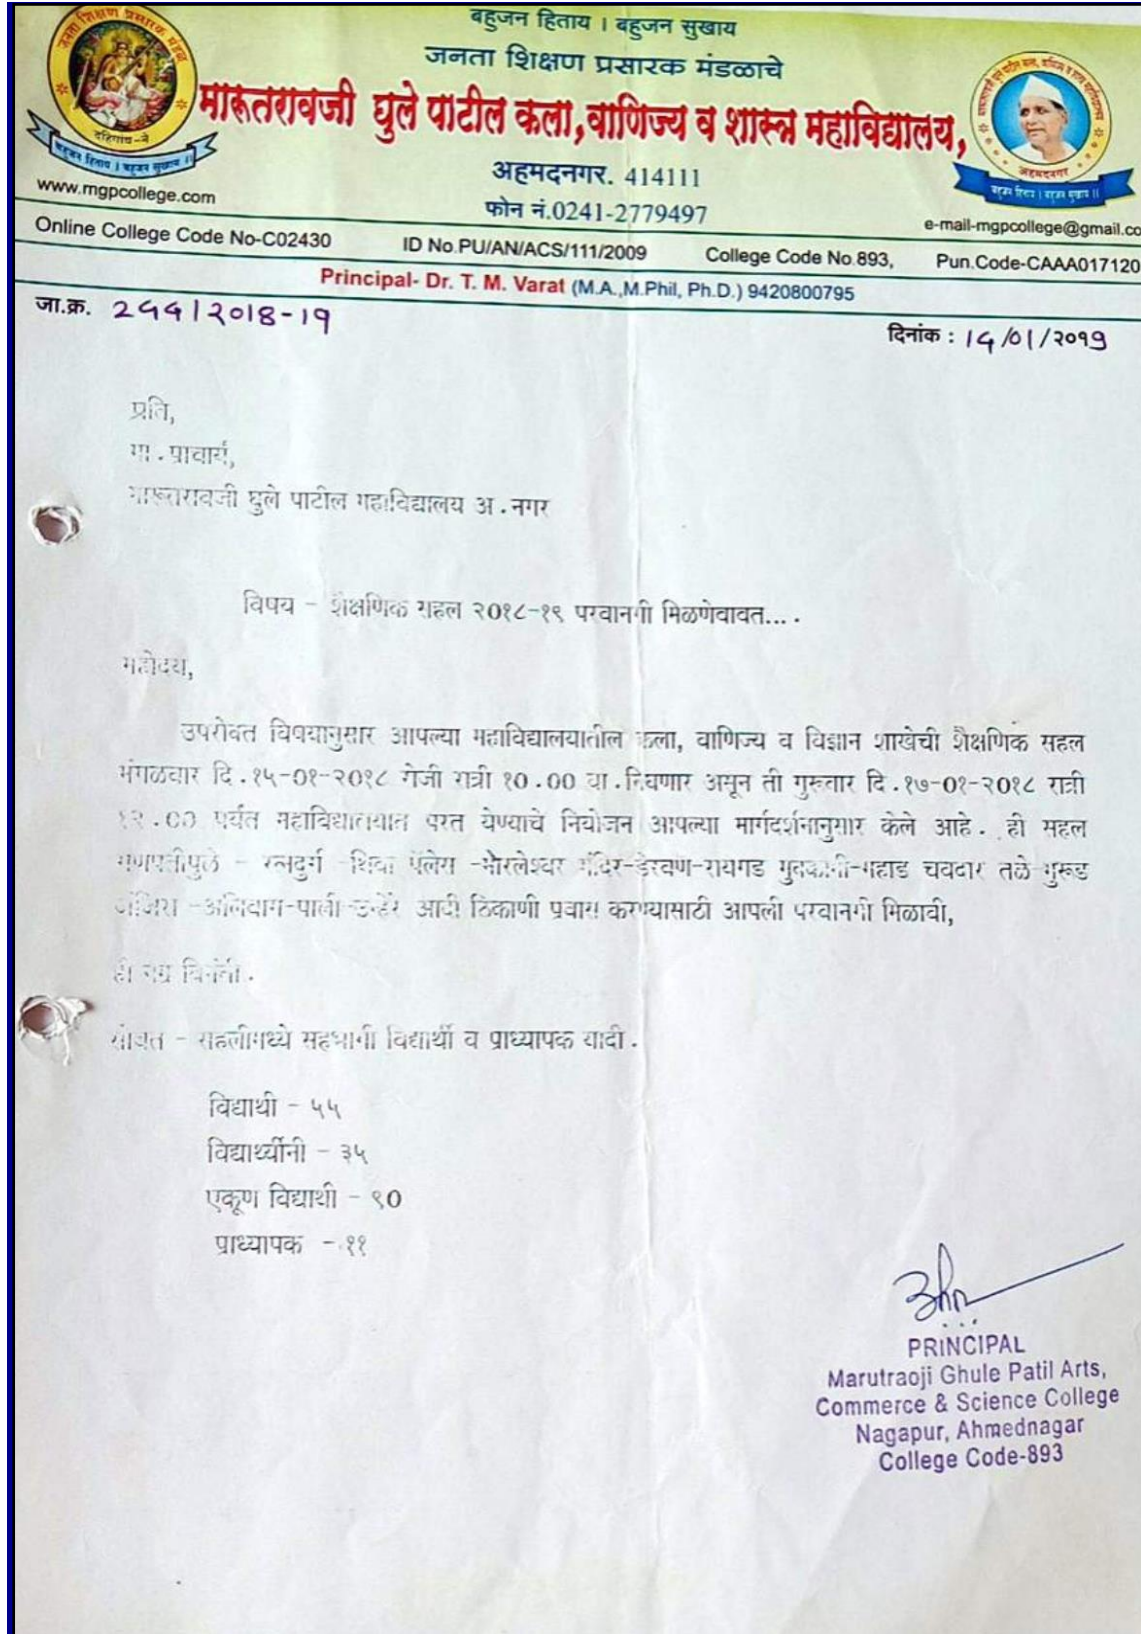 जनता शिक्षण प्रसारक मंडळ
दहिगांव-ने
बहुजन हिताय । बहुजन सुखाय ॥
बहुजन हिताय । बहुजन सुखाय
जनता शिक्षण प्रसारक मंडळाचे
मारूतरावजी घुले पाटील कला,वाणिज्य व शास्त्र महाविद्यालय,
अहमदनगर. 414111
फोन नं.0241-2779497
अहमदनगर
बहुजन हिताय । बहुजन सुखाय ॥
www.mgpcollege.com
e-mail-mgpcollege@gmail.co
Online College Code No-C02430 ID No.PU/AN/ACS/111/2009 College Code No.893, Pun.Code-CAAA017120
Principal- Dr. T. M. Varat (M.A.,M.Phil, Ph.D.) 9420800795
जा.क्र. 2५५/२०१8-19
दिनांक : 1५/01/२०१9
प्रति,
मा.प्राचार्य,
मारूतरावजी घुले पाटील महाविद्यालय अ.नगर
विषय - शैक्षणिक सहल २०१८-१९ परवानगी मिळणेबाबत....
महोदय,
उपरोक्त विषयानुसार आपल्या महाविद्यालयातील कला, वाणिज्य व विज्ञान शाखेची शैक्षणिक सहल
मंगळवार दि.१५-०१-२०१८ रोजी रात्री १०.०० वा.निघणार असून ती गुरूवार दि.१७-०१-२०१८ रात्री
१२.०० पर्यंत महाविद्यालयात परत येण्याचे नियोजन आपल्या मार्गदर्शनानुसार केले आहे. ही सहल
गणपतीपुळे - रत्नदुर्ग -थिबा पॅलेस -मार्लेश्वर मंदिर-डेरवण-रायगड मुक्कामी-महाड चवदार तळे-मुरूड
जंजिरा -अलिबाग-पाली-उन्हेरे आदी ठिकाणी प्रवास करण्यासाठी आपली परवानगी मिळावी,
ही नम्र विनंती.
सोबत - सहलीमध्ये सहभागी विद्यार्थी व प्राध्यापक यादी.
विद्याथी - ५५
विद्यार्थ्यीनी - ३५
एकूण विद्याथी - ९०
प्राध्यापक - ११
PRINCIPAL
Marutraoji Ghule Patil Arts,
Commerce & Science College
Nagapur, Ahmednagar
College Code-893